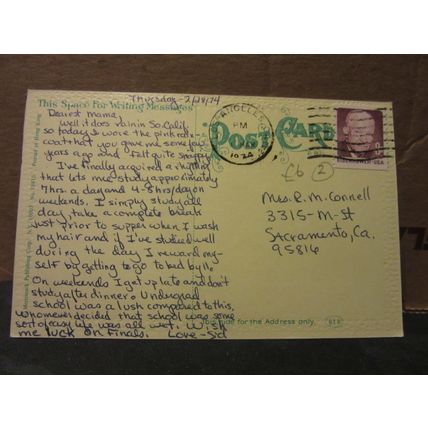 Thursday - 2/28/74
This Space For Writing Messages
Dearest mame,
Well it does rain in So. Calif.
so today I wore the pink rain-
coat that you gave me some few
years ago and felt quite snappy.
I've finally acquired a rhythm
that lets me study approximately
7 hrs. a day and 4-8 hrs/day on
weekends. I simply study all
day, take a complete break
just prior to supper when I wash
my hair and if I've studied well
during the day I reward my-
self by getting to go to bed by 11.
On weekends I get up late and don't
study after dinner. Undergrad
school was a lush compared to this,
whomever decided that school was some
sort of easy life was all wet. Wish
me luck on finals. Love - Sid
POST CARD
ANGELES
PM
1974
USA
£6 2
Mrs. R. M. Connell
3315 - M - St
Sacramento, Ca.
95816
This side for the Address only.
Printed in Hong Kong